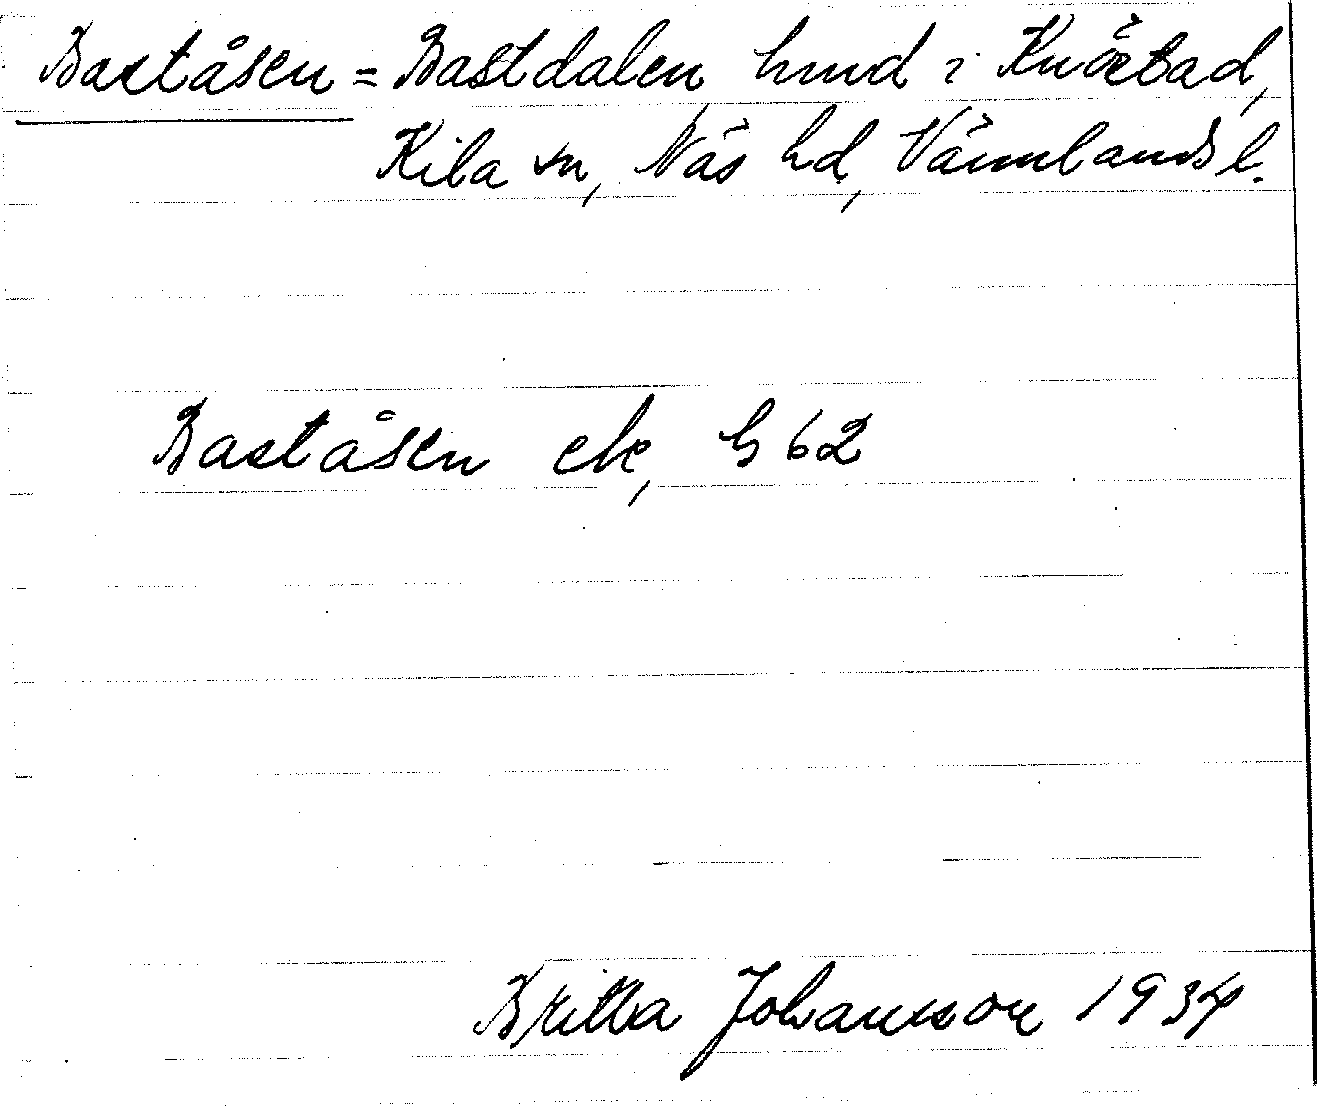 Baståsen = Bastdalen hmd i Knöstad,
Kila sn, Näs hd, Värmlands l.
Baståsen ek, G 62
Britta Johansson 1934